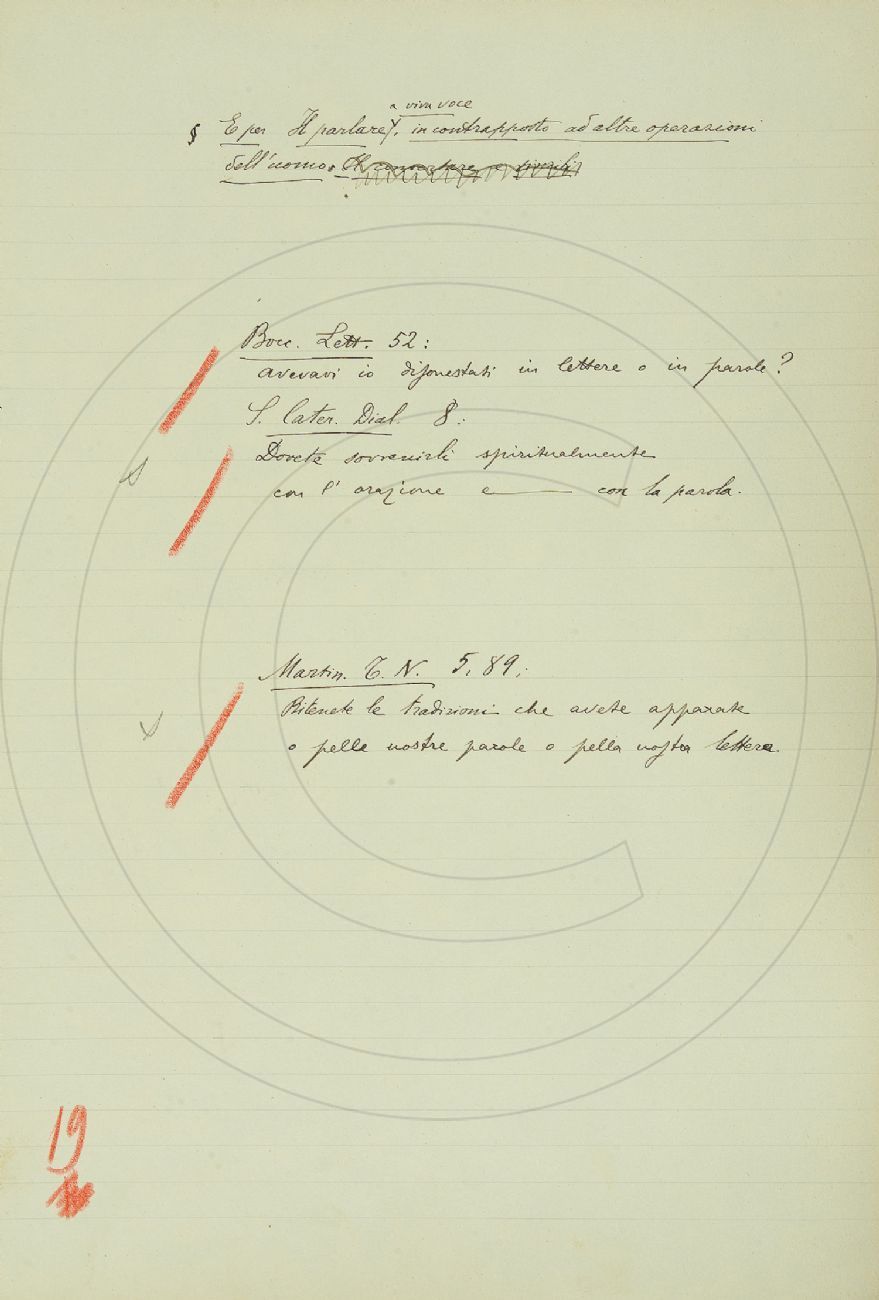 a viva voce
§ E per Il parlare, in contrapposto ad altre operazioni
dell'uomo.
Bocc. Lett. 52:
avevavi io disonestati in lettere o in parole?
S. Cater. Dial. 8:
Dovete sovvenirli spiritualmente
con l' orazione e —— con la parola.
Martin. T. N. 5, 89:
Ritenete le tradizioni che avete apparate
o pelle nostre parole o pella nostra lettera.
19